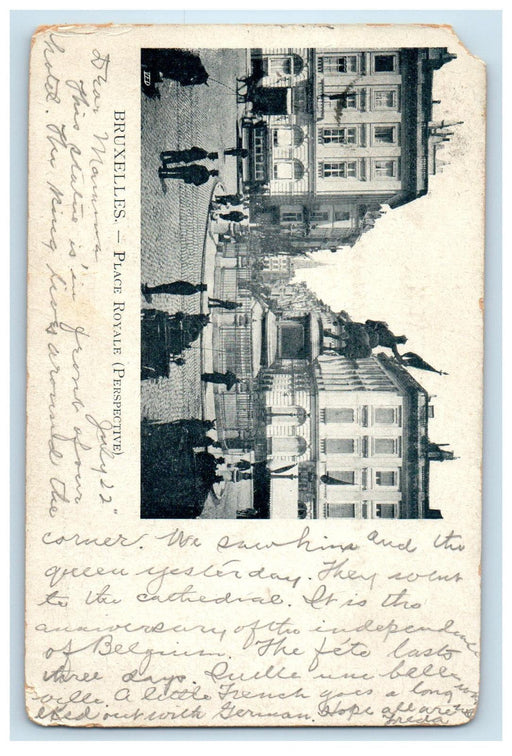 BRUXELLES. — PLACE ROYALE (PERSPECTIVE)
July 22"
Dear Mamma
This statue is in front of our
hotel. The King lives around the
corner. We saw him and the
queen yesterday. They went
to the cathedral. It is the
anniversary of the independence
of Belgium. The fete lasts
three days. Quelle une belle
ville. A little French goes a long
ked out with German. Hope all are
Freda